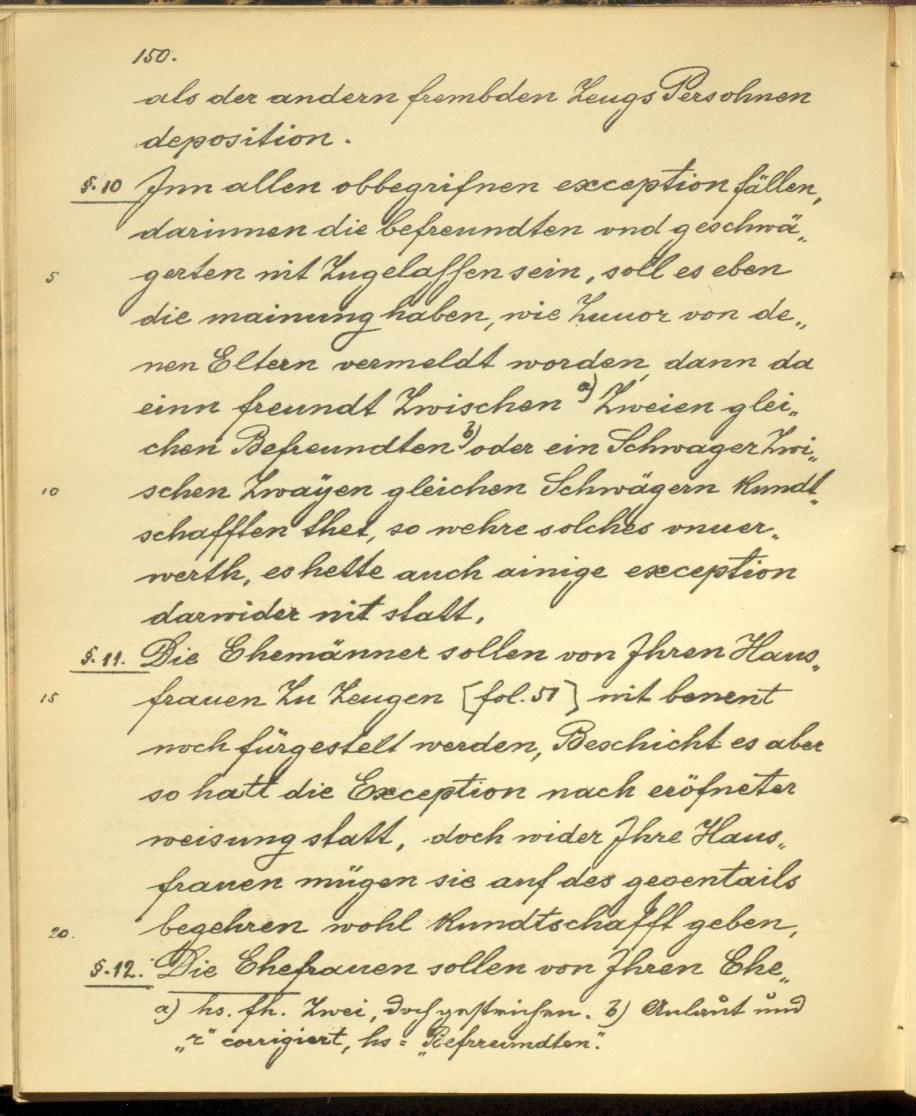 150.
als der andern frembden Zeugs Persohnen
deposition.
§.10 Jnn allen obbegrifnen exception fällen,
darinnen die befreundten vnd geschwä„
5 gerten nit Zugelassen sein, soll es eben
die mainung haben, wie Zuuor von de„
nen Eltern vermeldt worden, dann da
einn freundt Zwischen a) Zweien glei„
chen Befreundten b) oder ein Schwager Zwi„
10 schen Zwaÿen gleichen Schwägern Kundt„
schafften thet, so wehre solches vnuer„
werth, es hette auch ainige exception
darwider nit statt.
§.11. Die Ehemänner sollen von Jhren Haus„
15 frauen Zu Zeugen [fol. 51] nit benent
noch fürgestelt werden, Beschicht es aber
so hatt die Exception nach eröfneter
weisung statt, doch wider Jhre Haus„
frauen mügen sie auf des gegentails
20. begehren wohl Kundtschafft geben,
§.12. Die Ehefrauen sollen von Jhren Ehe„
a) hs. fh. Zwei, doch gestrichen. b) Anlaut und
„r“ corrigiert, hs = „Refreundten“.